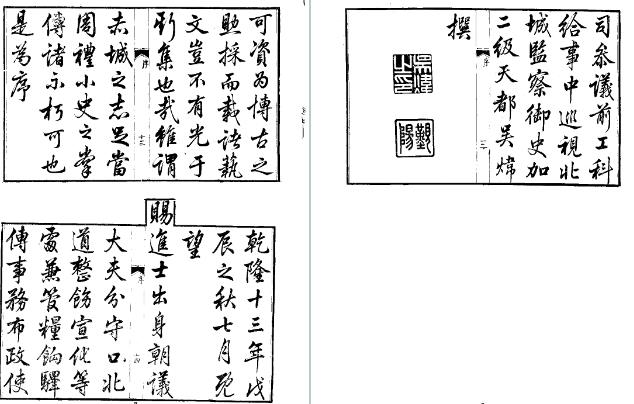 可資為博古之
助採而載諸藝
文豈不有光于
斯集也哉雖謂
序
十三
赤城之志足當
周禮小史之掌
傳諸不朽可也
是為序
乾隆十三年戊
辰之秋七月既
望
賜進士出身朝議
序
大夫分守口北
道整飭宣化等
處兼管糧餉驛
傳事務布政使
司參議前工科
給事中巡視北
城監察御史加
二級天都吳煒
序
撰
吳煒之印